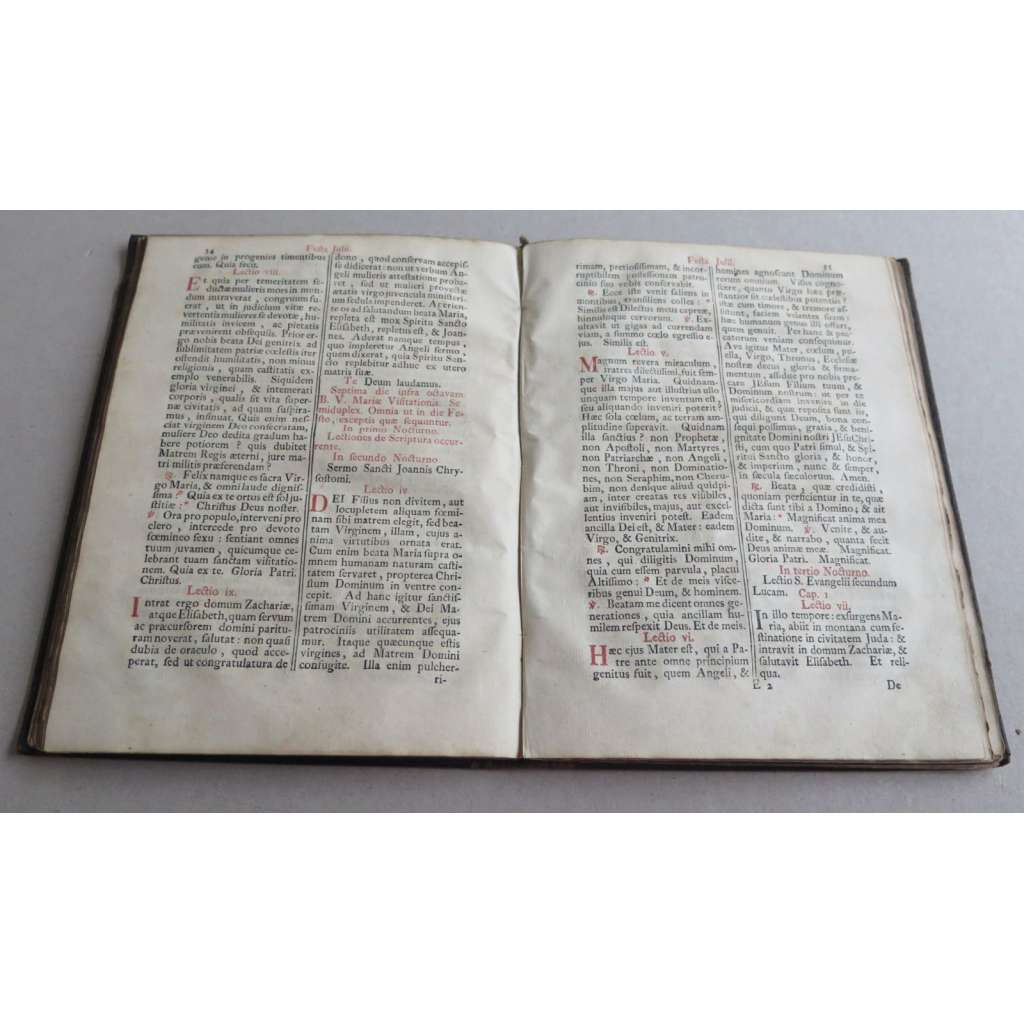 34
Festa Julii.
genie in progenies timentibus
eum. Quia fecit.
Lectio viii.
Et quia per temeritatem se-
ductæ mulieris mors in mun-
dum intraverat, congruum fu-
erat, ut in judicium vitæ re-
vertentis mulieres se devotæ, hu-
militatis invicem, ac pietatis
prævenirent obsequiis. Prior er-
go nobis beata Dei genitrix ad
sublimitatem patriæ cœlestis iter
ostendit humilitatis, non minus
religionis, quam castitatis ex-
emplo venerabilis. Siquidem
gloria virginei, & intemerati
corporis, qualis sit vita super-
næ civitatis, ad quam suspira-
mus, insinuat. Quis enim nes-
ciat virginem Deo consecratam,
muliere Deo dedita gradum ha-
bere potiorem? quis dubitet
Matrem Regis æterni, jure ma-
tri militis præferendam?
℟. Felix namque es sacra Vir-
go Maria, & omni laude dignis-
sima * Quia ex te ortus est sol ju-
stitiæ: * Christus Deus noster.
℣. Ora pro populo, interveni pro
clero, intercede pro devoto
fœmineo sexu: sentiant omnes
tuum juvamen, quicumque ce-
lebrant tuam sanctam visitatio-
nem. Quia ex te. Gloria Patri.
Christus.
Lectio ix.
Intrat ergo domum Zachariæ,
atque Elisabeth, quam servum
ac præcursorem domini paritu-
ram noverat, salutat: non quasi
dubia de oraculo, quod acce-
perat, sed ut congratulatura de
dono, quod conservam accepis-
se didicerat: non ut verbum An-
geli mulieris attestatione proba-
ret, sed ut mulieri provectæ
ætatis virgo juvencula ministeri-
um sedula impenderet. Aperien-
te os ad salutandum beata Maria,
repleta est mox Spiritu Sancto
Elisabeth, repletus est, & Joan-
nes. Aderat namque tempus,
quo impleretur Angeli sermo,
quem dixerat, quia Spiritu San-
cto replebitur adhuc ex utero
matris suæ.
Te Deum laudamus.
Septima die infra octavam
B. V. Mariæ Visitationis. Se-
miduplex. Omnia ut in die Fe-
sto, exceptis quæ sequuntur.
In primo Nocturno.
Lectiones de Scriptura occur-
rente.
In secundo Nocturno
Sermo Sancti Joannis Chry-
sostomi.
Lectio iv.
DEI Filius non divitem, aut
locupletem aliquam fœmi-
nam sibi matrem elegit, sed bea-
tam Virginem, illam, cujus a-
nima virtutibus ornata erat.
Cum enim beata Maria supra o-
mnem humanam naturam casti-
tatem servaret, propterea Chri-
stum Dominum in ventre con-
cepit. Ad hanc igitur sanctis-
simam Virginem, & Dei Ma-
trem Domini accurrentes, ejus
patrociniis utilitatem assequa-
mur. Itaque quæcunque estis
virgines, ad Matrem Domini
confugite. Illa enim pulcher-
ri-
Festa Julii.
35
rimam, pretiosissimam, & incor-
ruptibilem possessionem patro-
cinio suo vobis conservabit.
℟. Ecce iste venit saliens in
montibus, transiliens colles: *
Similis est Dilectus meus capreæ,
hinnuloque cervorum. ℣. Ex-
ultavit ut gigas ad currendam
viam, a summo cœlo egressio e-
jus. Similis est.
Lectio v.
Magnum revera miraculum,
fratres dilectissimi, fuit sem-
per Virgo Maria. Quidnam-
que illa majus aut illustrius ull
unquam tempore inventum est,
seu aliquando inveniri poterit?
Hæc sola cœlum, ac terram am-
plitudine superavit. Quidnam
illa sanctius? non Prophetæ,
non Apostoli, non Martyres,
non Patriarchæ, non Angeli,
non Throni, non Dominatio-
nes, non Seraphim, non Cheru-
bim, non denique aliud quidpi-
am, inter creatas res visibiles,
aut invisibiles, majus, aut excel-
lentius inveniri potest. Eadem
ancilla Dei est, & Mater: eadem
Virgo, & Genitrix.
℟. Congratulamini mihi om-
nes, qui diligitis Dominum,
quia cum essem parvula, placui
Altissimo: * Et de meis visce-
ribus genui Deum, & hominem.
℣. Beatam me dicent omnes ge-
nerationes, quia ancillam hu-
milem respexit Deus. Et de meis.
Lectio vi.
Hæc ejus Mater est, qui a Pa-
tre ante omne principium
genitus fuit, quem Angeli, &
homines agnoscunt Dominum
rerum omnium. Visne cogno-
scere, quanto Virgo hæc præ-
stantior sit cœlestibus potentiis?
illæ cum timore, & tremore as-
sistunt, faciem velantes suam:
hæc humanum genus illi offert,
quem genuit. Per hanc & pec-
catorum veniam consequimur.
Ave igitur Mater, cœlum, pu-
ella, Virgo, Thronus, Ecclesiæ
nostræ decus, gloria & firma-
mentum, assidue pro nobis pre-
care JEsum Filium tuum, &
Dominum nostrum: ut per te
misericordiam invenire in die
judicii, & quæ reposita sunt iis,
qui diligunt Deum, bona con-
sequi possimus, gratia, & beni-
gnitate Domini nostri JEsu Chri-
sti, cum quo Patri simul, & Spi-
ritui Sancto gloria, & honor,
& imperium, nunc & semper,
in sæcula sæculorum. Amen.
℟. Beata, quæ credidisti,
quoniam perficientur in te, quæ
dicta sunt tibi a Domino; & ait
Maria: * Magnificat anima mea
Dominum. ℣. Venite, & au-
dite, & narrabo, quanta fecit
Deus animæ meæ. Magnificat.
Gloria Patri. Magnificat.
In tertio Nocturno.
Lectio S. Evangelii secundum
Lucam. Cap. 1
Lectio vii.
In illo tempore: exsurgens Ma-
ria, abiit in montana cum fe-
stinatione in civitatem Juda: &
intravit in domum Zachariæ, &
salutavit Elisabeth. Et reli-
qua.
E 2
De